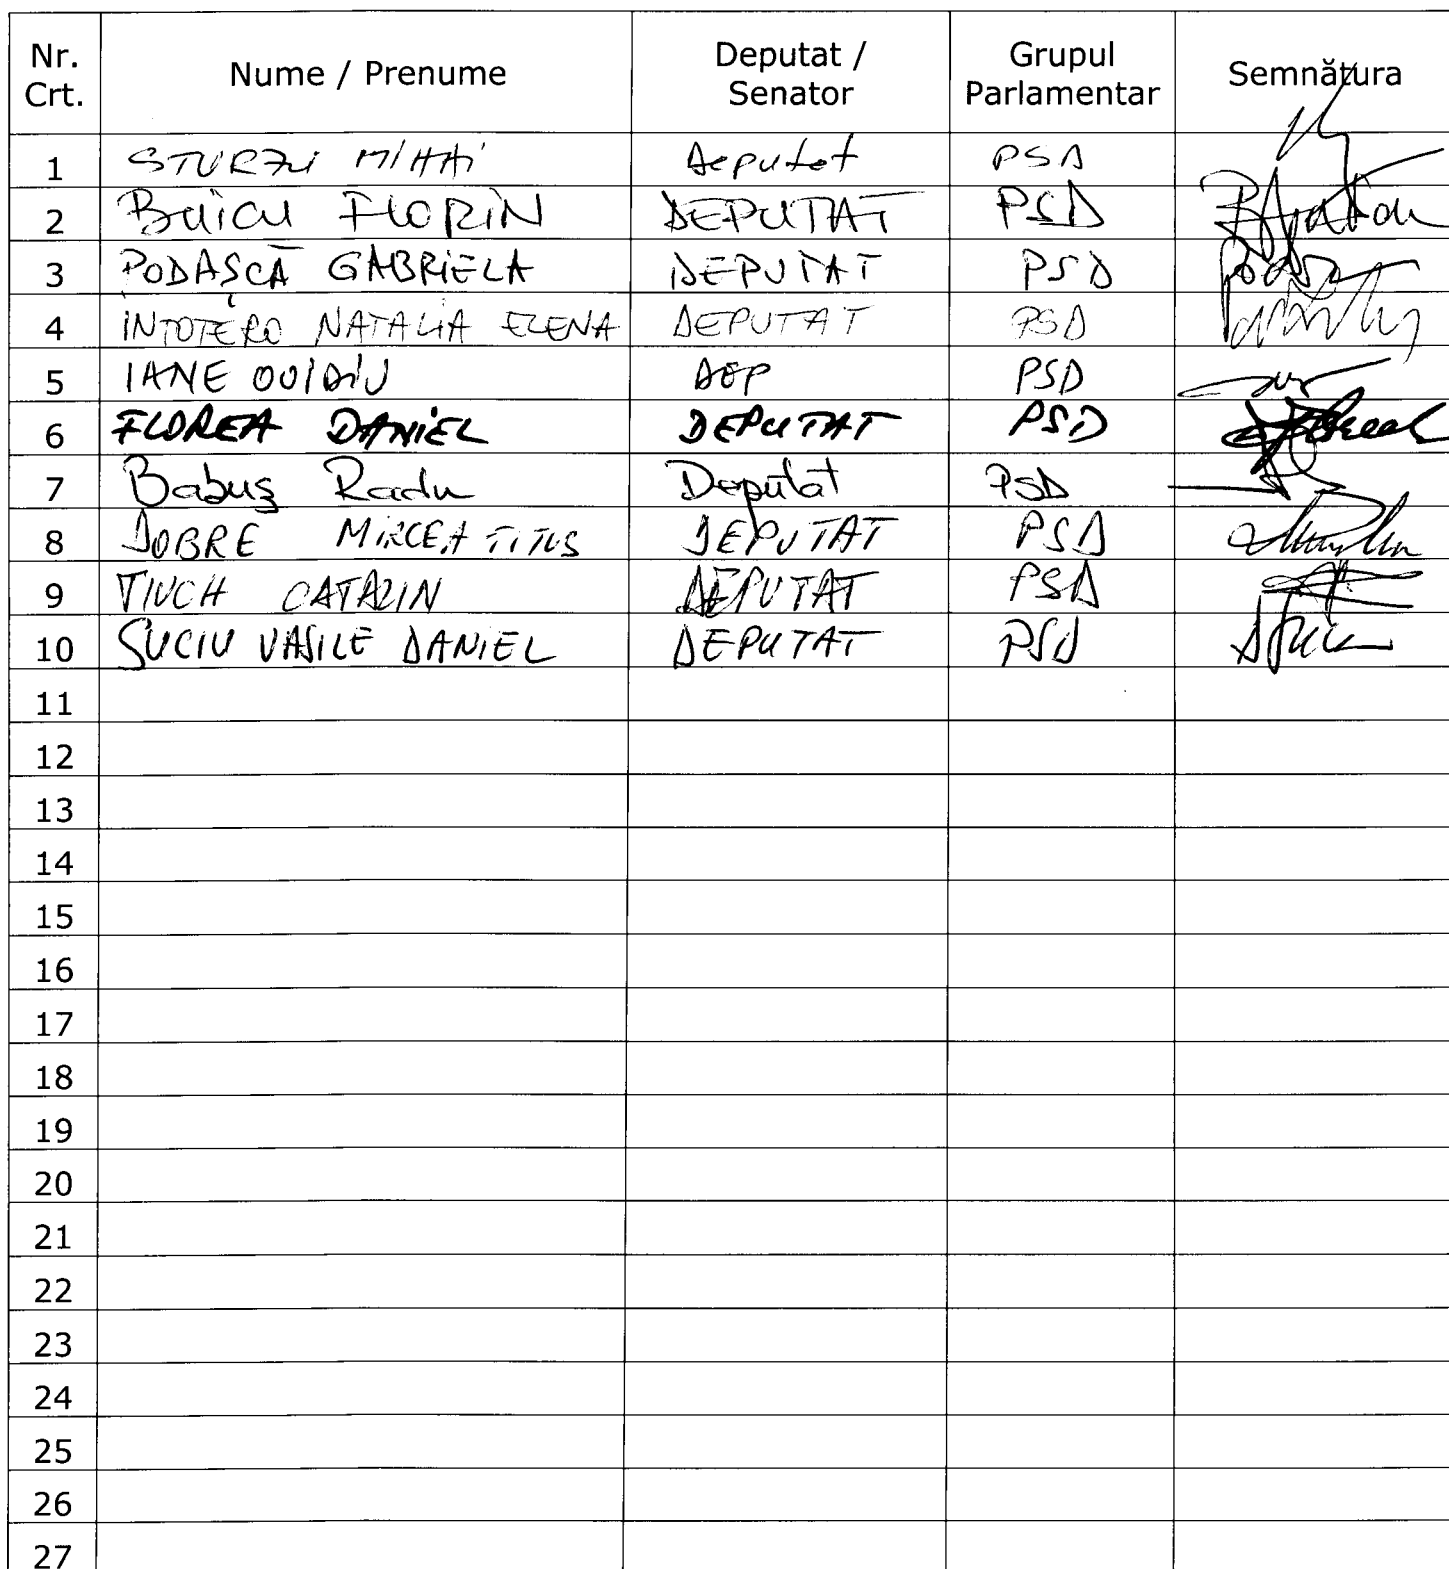 Nr. Crt. Nume / Prenume Deputat / Senator Grupul Parlamentar Semnătura
1 STURZU MIHAI Deputat PSD
2 Buicu FLORIN DEPUTAT PSD
3 PODAȘCĂ GABRIELA DEPUTAT PSD
4 INTOTERO NATALIA ELENA DEPUTAT PSD
5 IANE OVIDIU DEP PSD
6 FLOREA DANIEL DEPUTAT PSD
7 Babuș Radu Deputat PSD
8 DOBRE MIRCEA TITUS DEPUTAT PSD
9 TIUCH CATALIN DEPUTAT PSD
10 SUCIU VASILE DANIEL DEPUTAT PSD
11
12
13
14
15
16
17
18
19
20
21
22
23
24
25
26
27